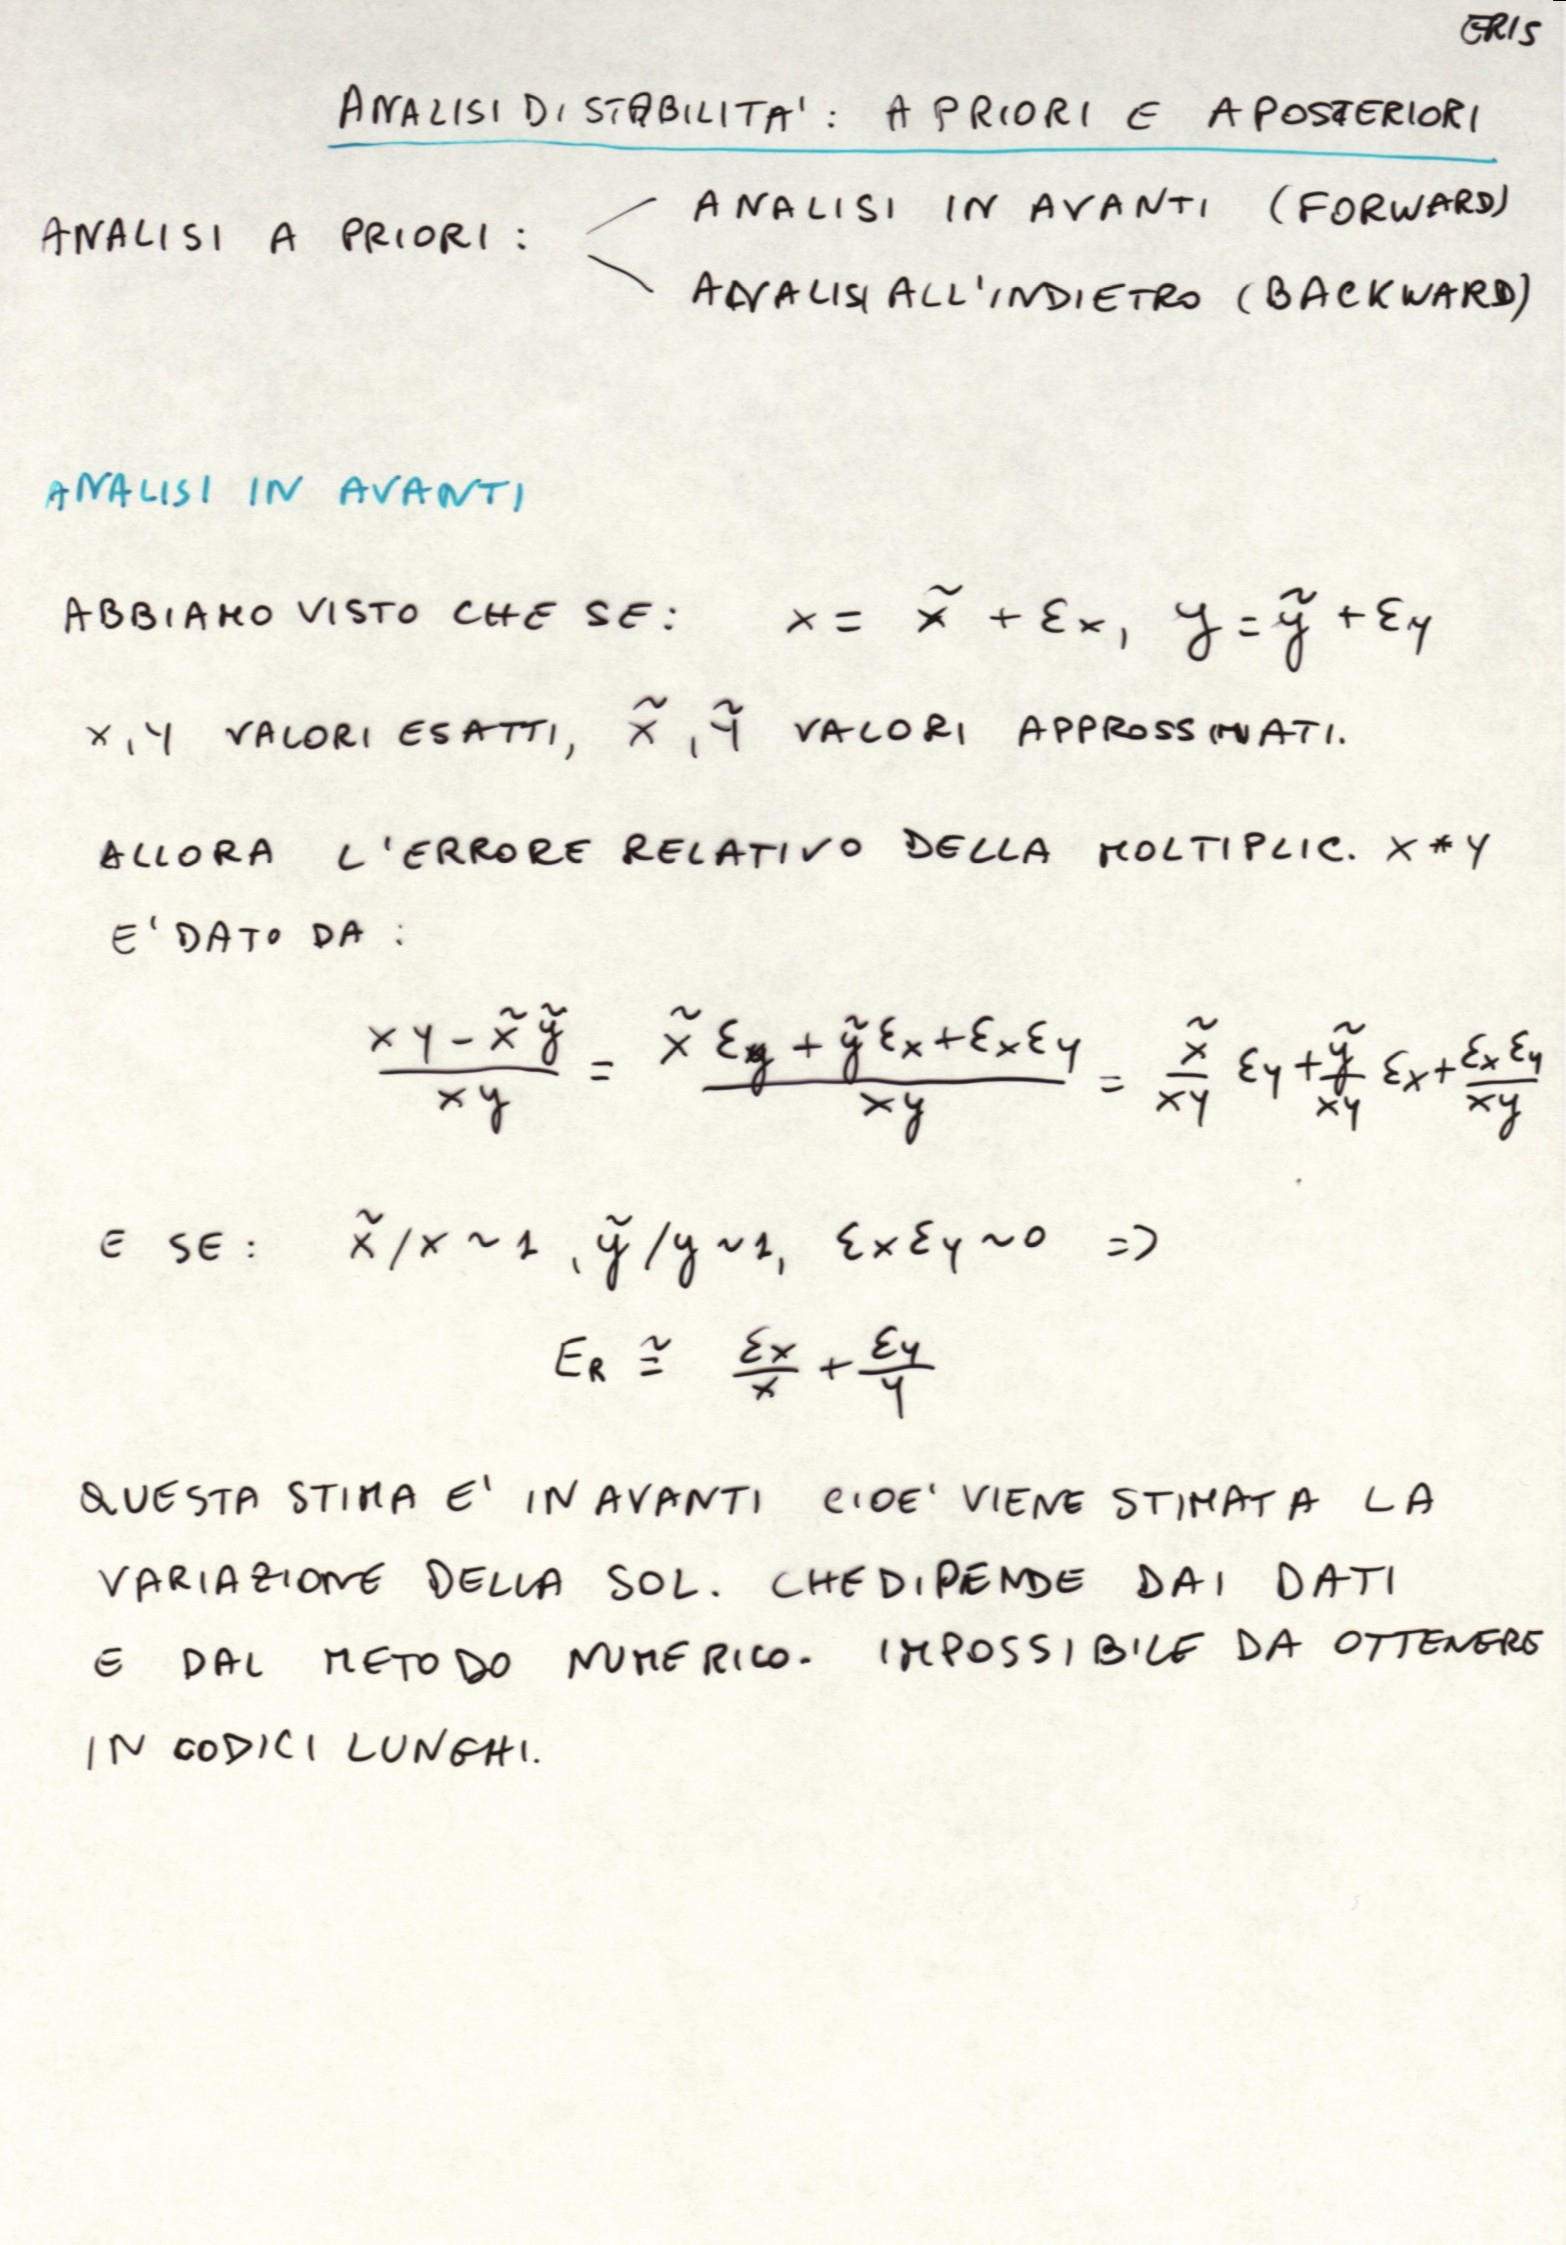 ER15
ANALISI DI STABILITA': A PRIORI E A POSTERIORI
ANALISI A PRIORI:
ANALISI IN AVANTI (FORWARD)
ANALISI ALL'INDIETRO (BACKWARD)
ANALISI IN AVANTI
ABBIAMO VISTO CHE SE: x = x̃ + εx, y = ỹ + εy
x, y VALORI ESATTI, x̃, ỹ VALORI APPROSSIMATI.
ALLORA L'ERRORE RELATIVO DELLA MOLTIPLIC. X * Y
E' DATO DA :
(xy - x̃ỹ)/(xy) = (x̃ εy + ỹ εx + εx εy)/(xy) = x̃/(xy) εy + ỹ/(xy) εx + (εx εy)/(xy)
E SE: x̃/x ~ 1, ỹ/y ~ 1, εx εy ~ 0 =>
E_R ≅ εx/x + εy/y
QUESTA STIMA E' IN AVANTI CIOE' VIENE STIMATA LA
VARIAZIONE DELLA SOL. CHE DIPENDE DAI DATI
E DAL METODO NUMERICO. IMPOSSIBILE DA OTTENERE
IN CODICI LUNGHI.